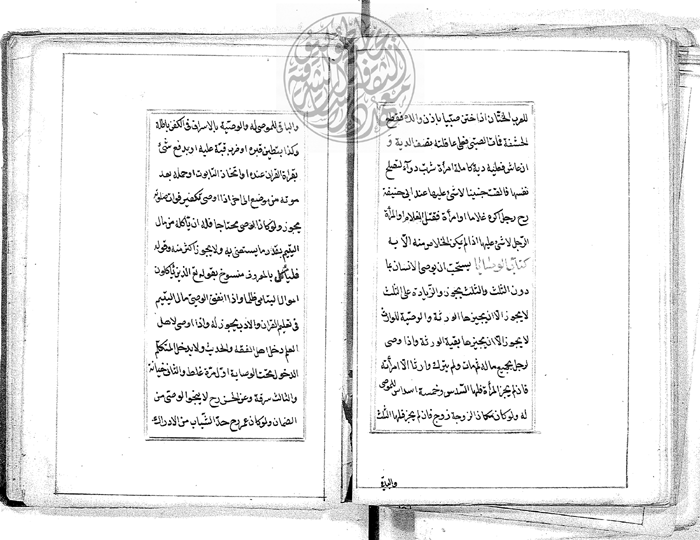 للعرب الختان اذا ختن صبيا باذن والده فقطع
الحشفة فمات الصبى فعلى عاقلته نصف الدية و
ان عاش فعليه دية كاملة امرأة شربت دواء لتصلح
نفسها فالقت جنينا لا شئ عليها عند ابى حنيفة
رح رجل كره غلاما او امرأة فقتل الغلام او المرأة
الرجل لا شئ عليها اذا لم يكن الخلاص منه الا به
كتاب الوصايا يستحب ان يوصى لانسان بما
دون الثلث والثلث يجوز والزيادة على الثلث
لا يجوز الا ان يجيزها الورثة والوصية للوارث
لا يجوز الا ان يجيزها بقية الورثة واذا وصى
لرجل بجميع ماله ثم مات ولم يترك وارثا الا امرأته
فان لم يجز المرأة فلها السدس وخمسة اسداس للموصى
له ولو كان مكان الزوجة زوج فان لم يجز فلها الثلث
والباقى
والباقى للموصى له والوصية بالاسراف فى الكفن باطلة
وكذا بتطيين قبره او ضرب قبة عليه او بدفع شئ
لقراءة القرآن عنده او اتخاذ التابوت او حمله بعد
موته من موضع الى اخر اذا اوصى تكفير فوات صلوته
يجوز ولو كان الوصى محتاجا فله ان يأكله من مال
اليتيم بقدر ما يستغنى به ولا يجوز اكثر منه وقوله
فليأكل بالمعروف منسوخ بقوله ان الذين يأكلون
اموال اليتامى ظلما واذا انفق الوصى مال اليتيم
فى تعليم القرآن والادب يجوز له واذا اوصى لاهل
العلم دخل اهل الفقه والحديث ولا يدخل المتكلم
الدخول تحت الوصاية اول مرة غلط والثانى خيانة
والثالث سرقة وعن الحسن رح لا ينجوا الوصى من
الضمان ولو كان عمر رح حد الشباب من الادراك